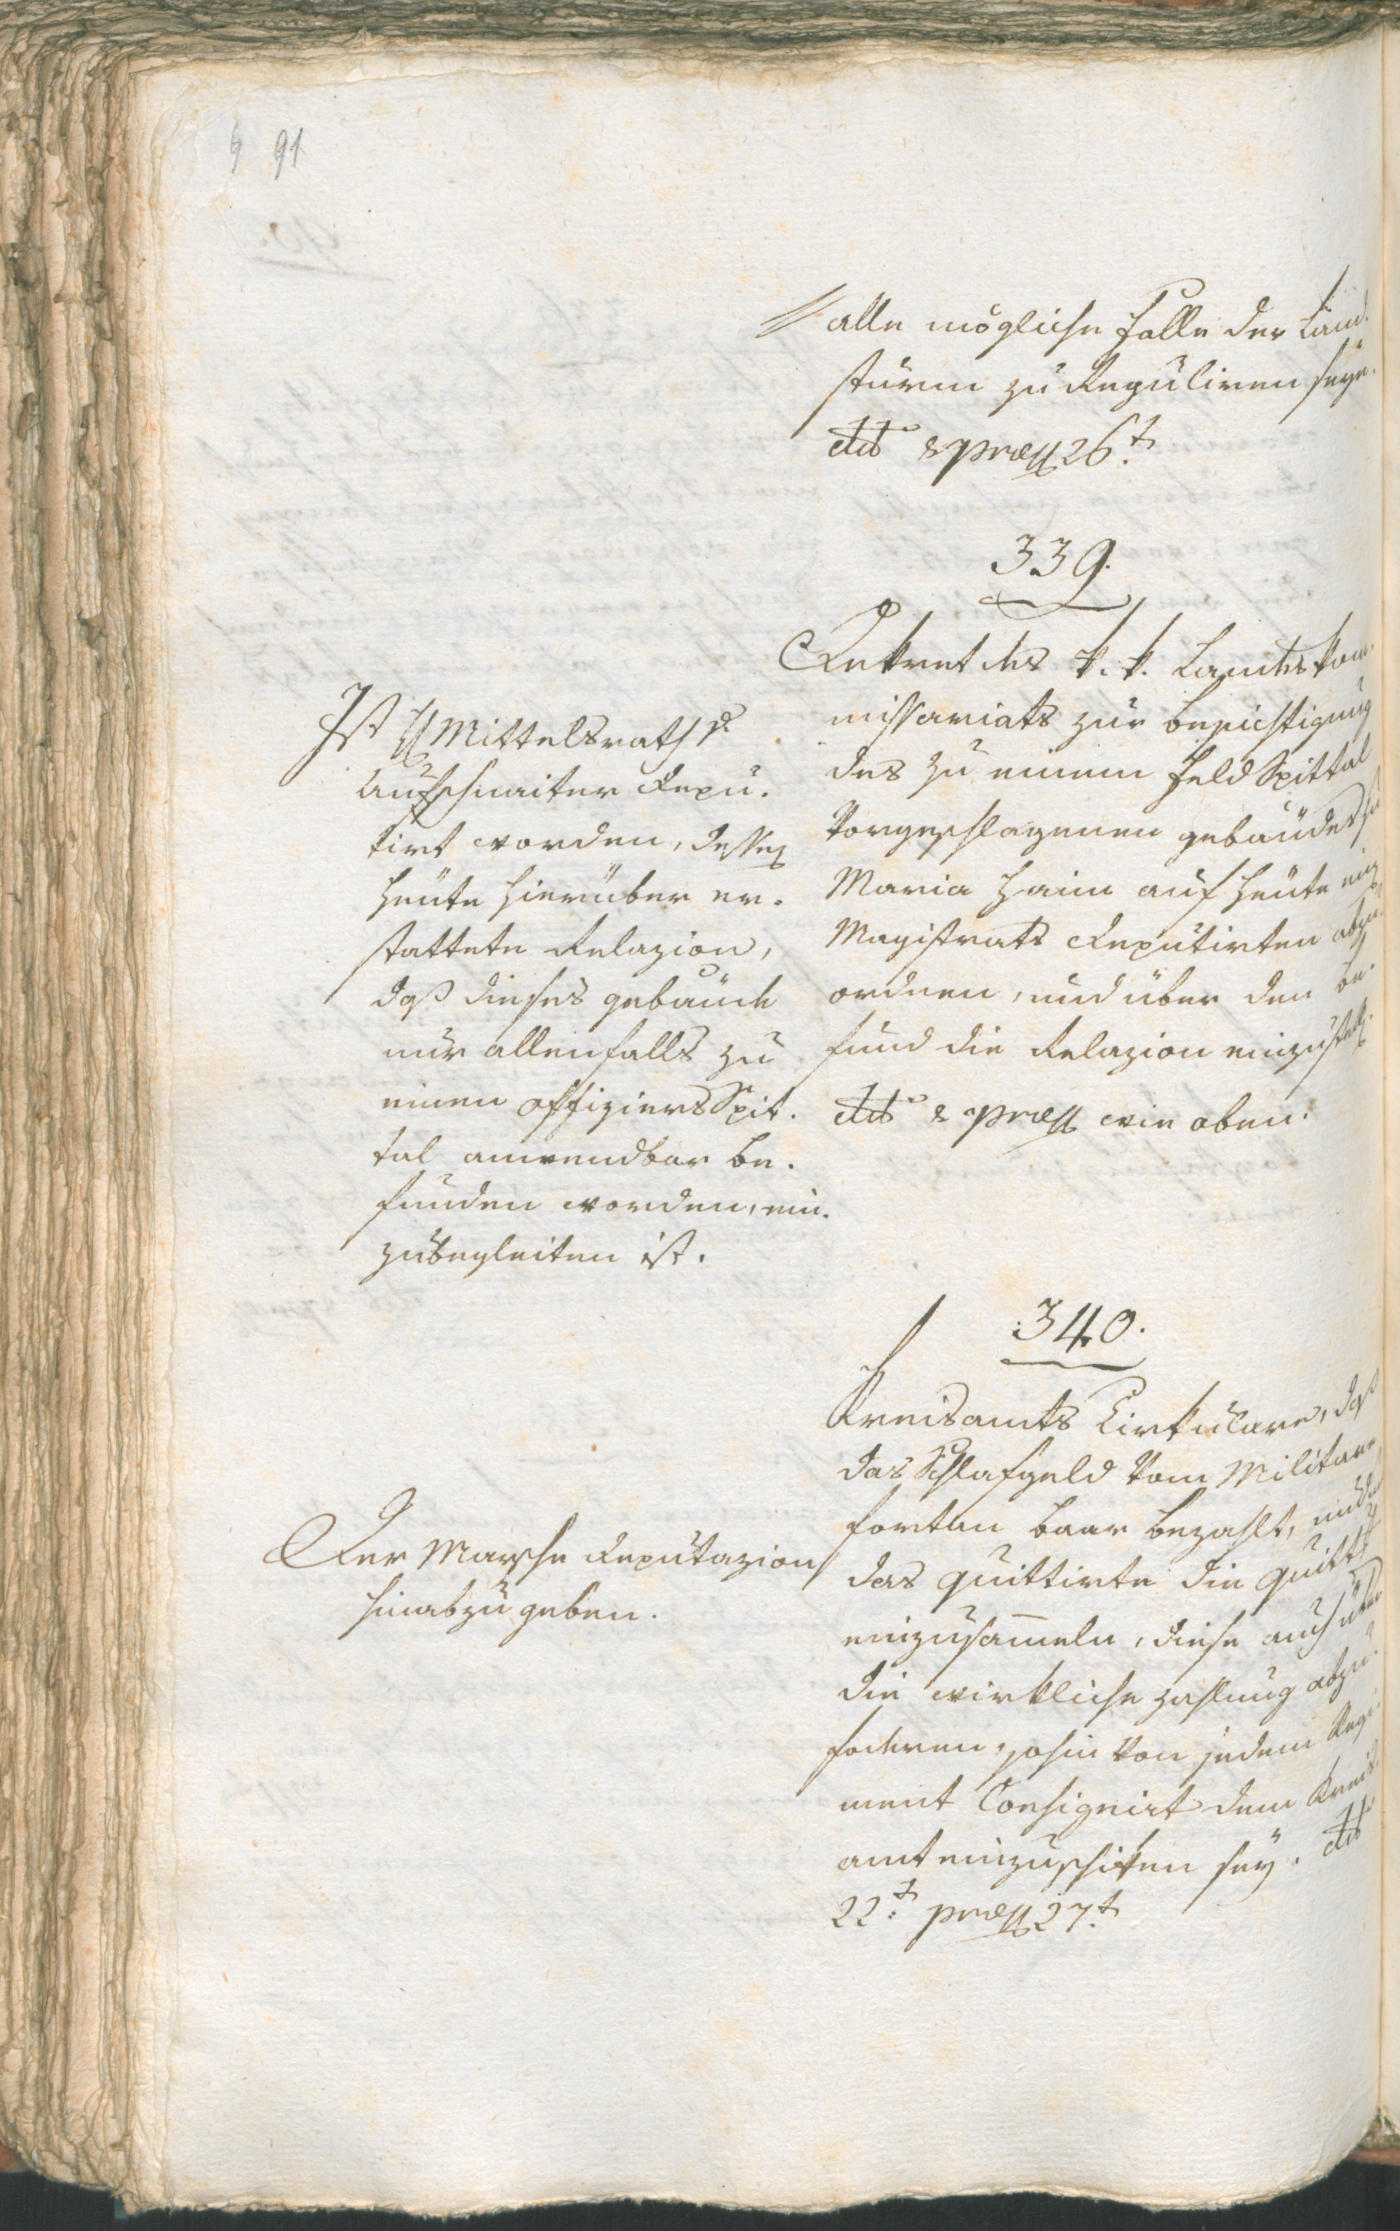 91
alle mögliche Fälle der Land¬
stürm zu Reguliren seye.
ddto & præs 26t
339.
Dekret des k. k. Landeskom¬
missariats zur besichtigung
des zu einem FeldSpittal
Vorgeschlagenen gebäudes zu
Maria Heim auf heute ein
Magistrats Deputirten abzu¬
ordnen, und über den be¬
fund die Relazion einzustell
ddto & præs wie oben.
Ist H Mittelsrath v
Aufschnaiter Depu¬
tirt worden, dessen
heute hierüber er¬
stattete Relazion,
daß dieses gebäude
nur allenfalls zu
einen OffiziersSpit¬
tal anwendbar be¬
funden worden, ein¬
zubegleiten ist.
340.
Kreisamts Cirkulare, daß
das Schlafgeld vom Militare
fortan baar bezahlt,
das quittirte die Quitt
einzusam̅eln, diese auch über
die wirkliche zahlung abzu¬
fodern, sohin von jedem Regi¬
ment Consignirt dem Kreis¬
amt einzuschiken sey. ddto
22t præs 27t
Der Marsche Deputazion
hinabzugeben.